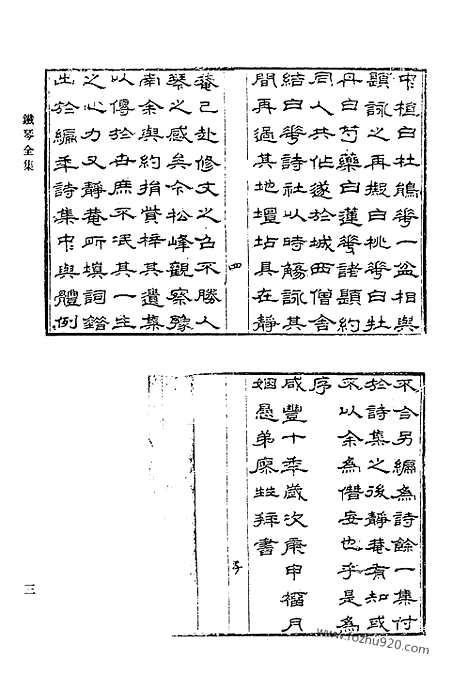 鐵琴全集
中植白杜鵑花一盆相與
題詠之再擬白桃花白牡
丹白芍藥白蓮花諸題約
同人共作遂於城西僧舍
結白花詩社以時觴詠其
間再過其地壇坫具在靜
四
菴已赴修文之召不勝人
琴之感矣令松峰觀察豫
南余與約捐貲梓其遺集
以傳於世庶不泯其一生
之心力又靜菴所填詞鍇
出於編年詩集中與體例
不合另編為詩餘一集付
於詩集之後靜菴有知或
不以余為僭妄也乎是為
序
咸豐十年歲次庚申榴月
姻愚弟廖甡拜書
三
www.fozhu920.com